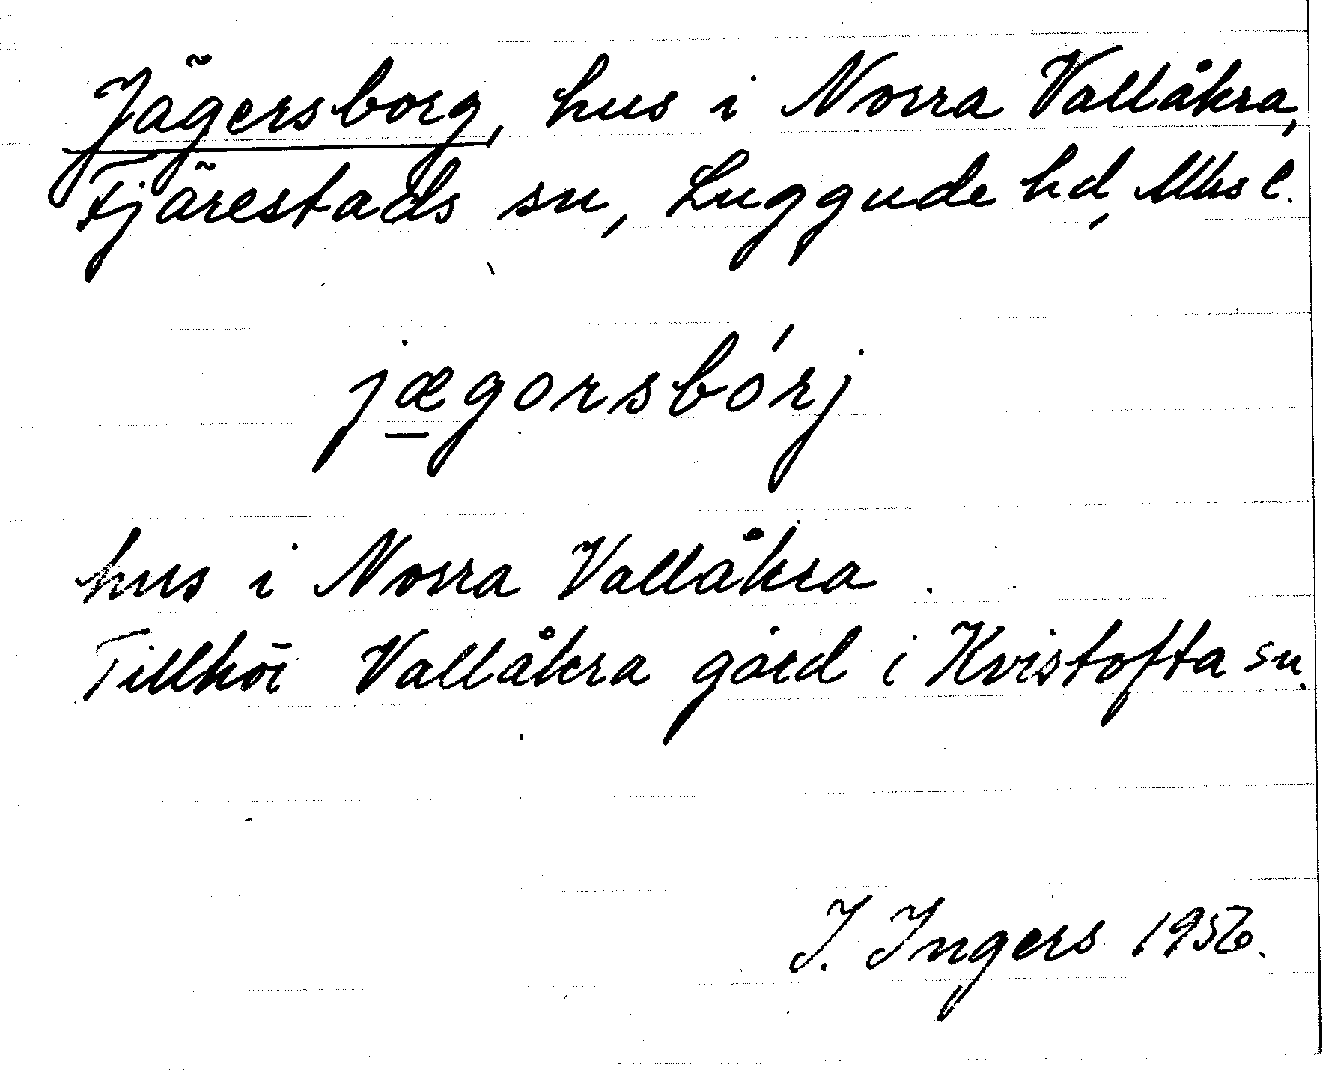 Jägersborg, hus i Norra Vallåkra,
Fjärestads sn, Luggude hd, Mhs l.
jægorsbórj
hus i Norra Vallåkra.
Tillhör Vallåkra gård i Kvistofta sn.
I. Ingers 1956.